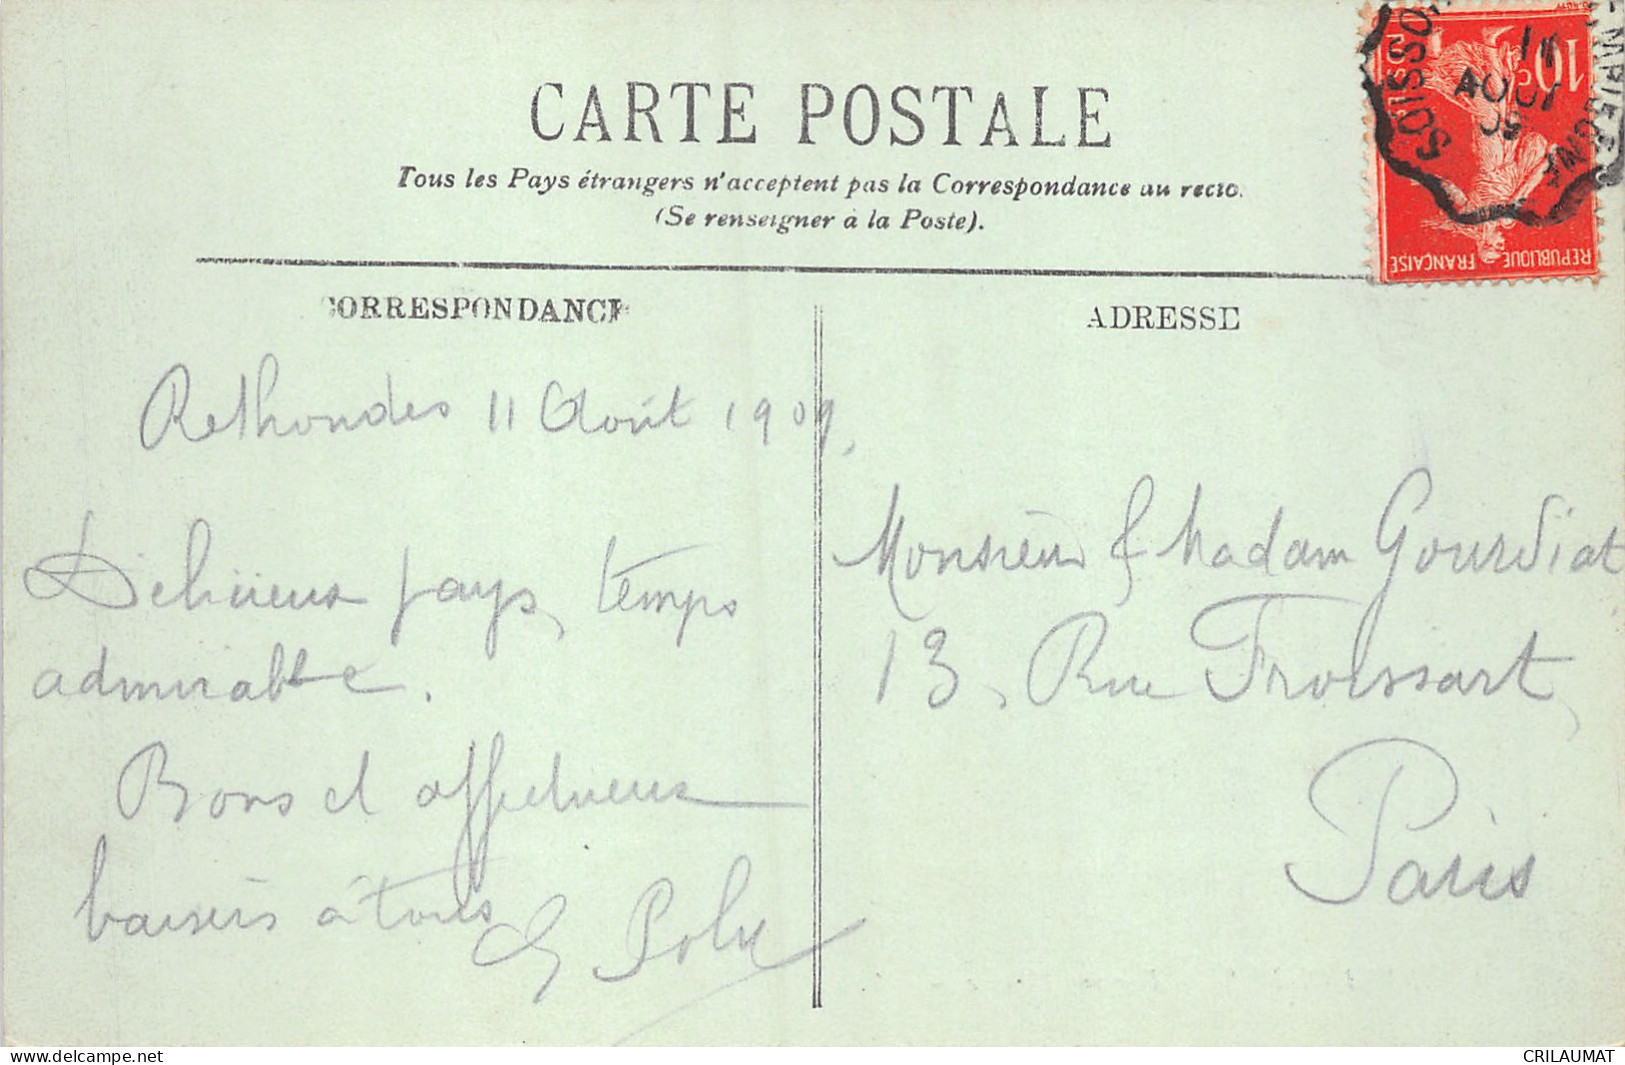 CARTE POSTALE
Tous les Pays étrangers n'acceptent pas la Correspondance au recto.
(Se renseigner à la Poste).
CORRESPONDANCE
ADRESSE
Rethondes 11 Août 1909,
Délicieux pays, temps
admirable.
Bons et affectueux
baisers à tous
Monsieur & Madam Gourdiat
13, Rue Froissart,
Paris
10c
POSTES
REPUBLIQUE FRANÇAISE
11
AOUT
09
CRILAUMAT
www.delcampe.net